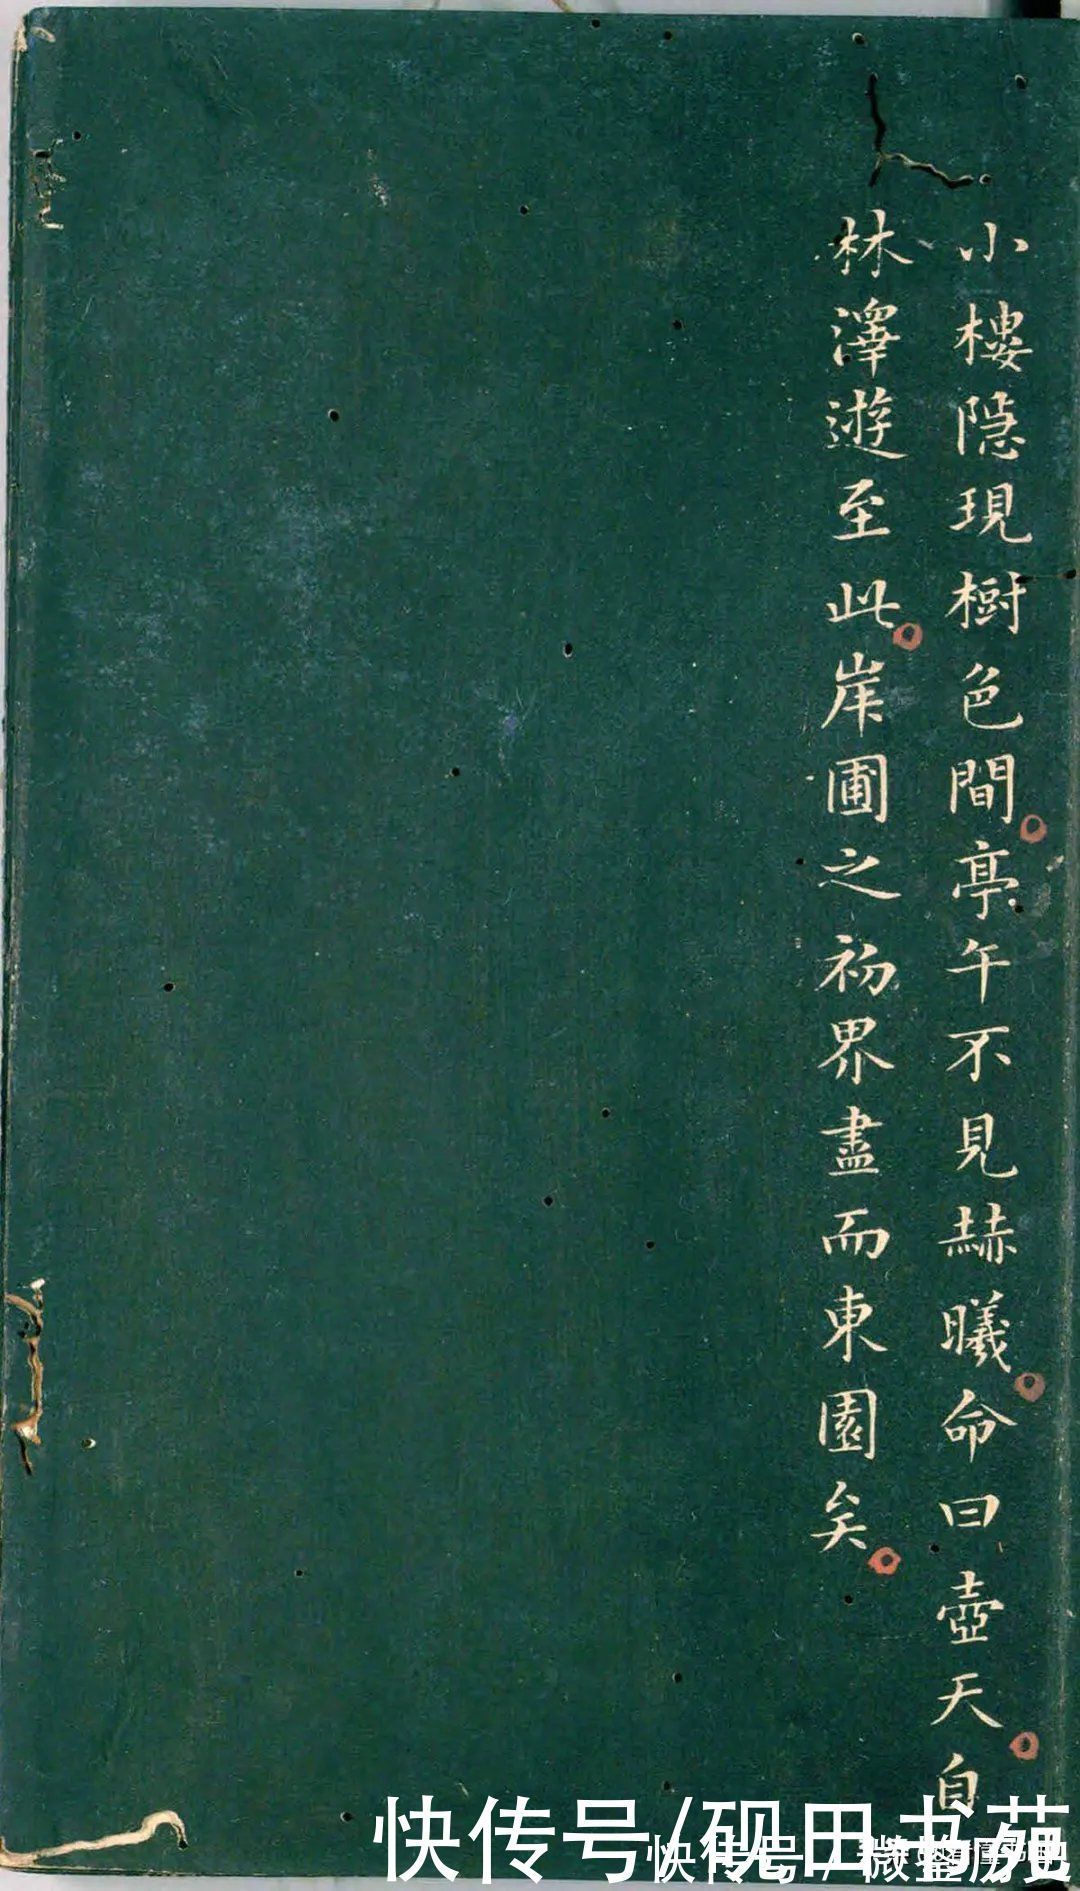 小樓隱現樹色間亭午不見赫曦命曰壺天自
林澤遊至此岸圃之初界盡而東園矣
快传号/砚田书苑